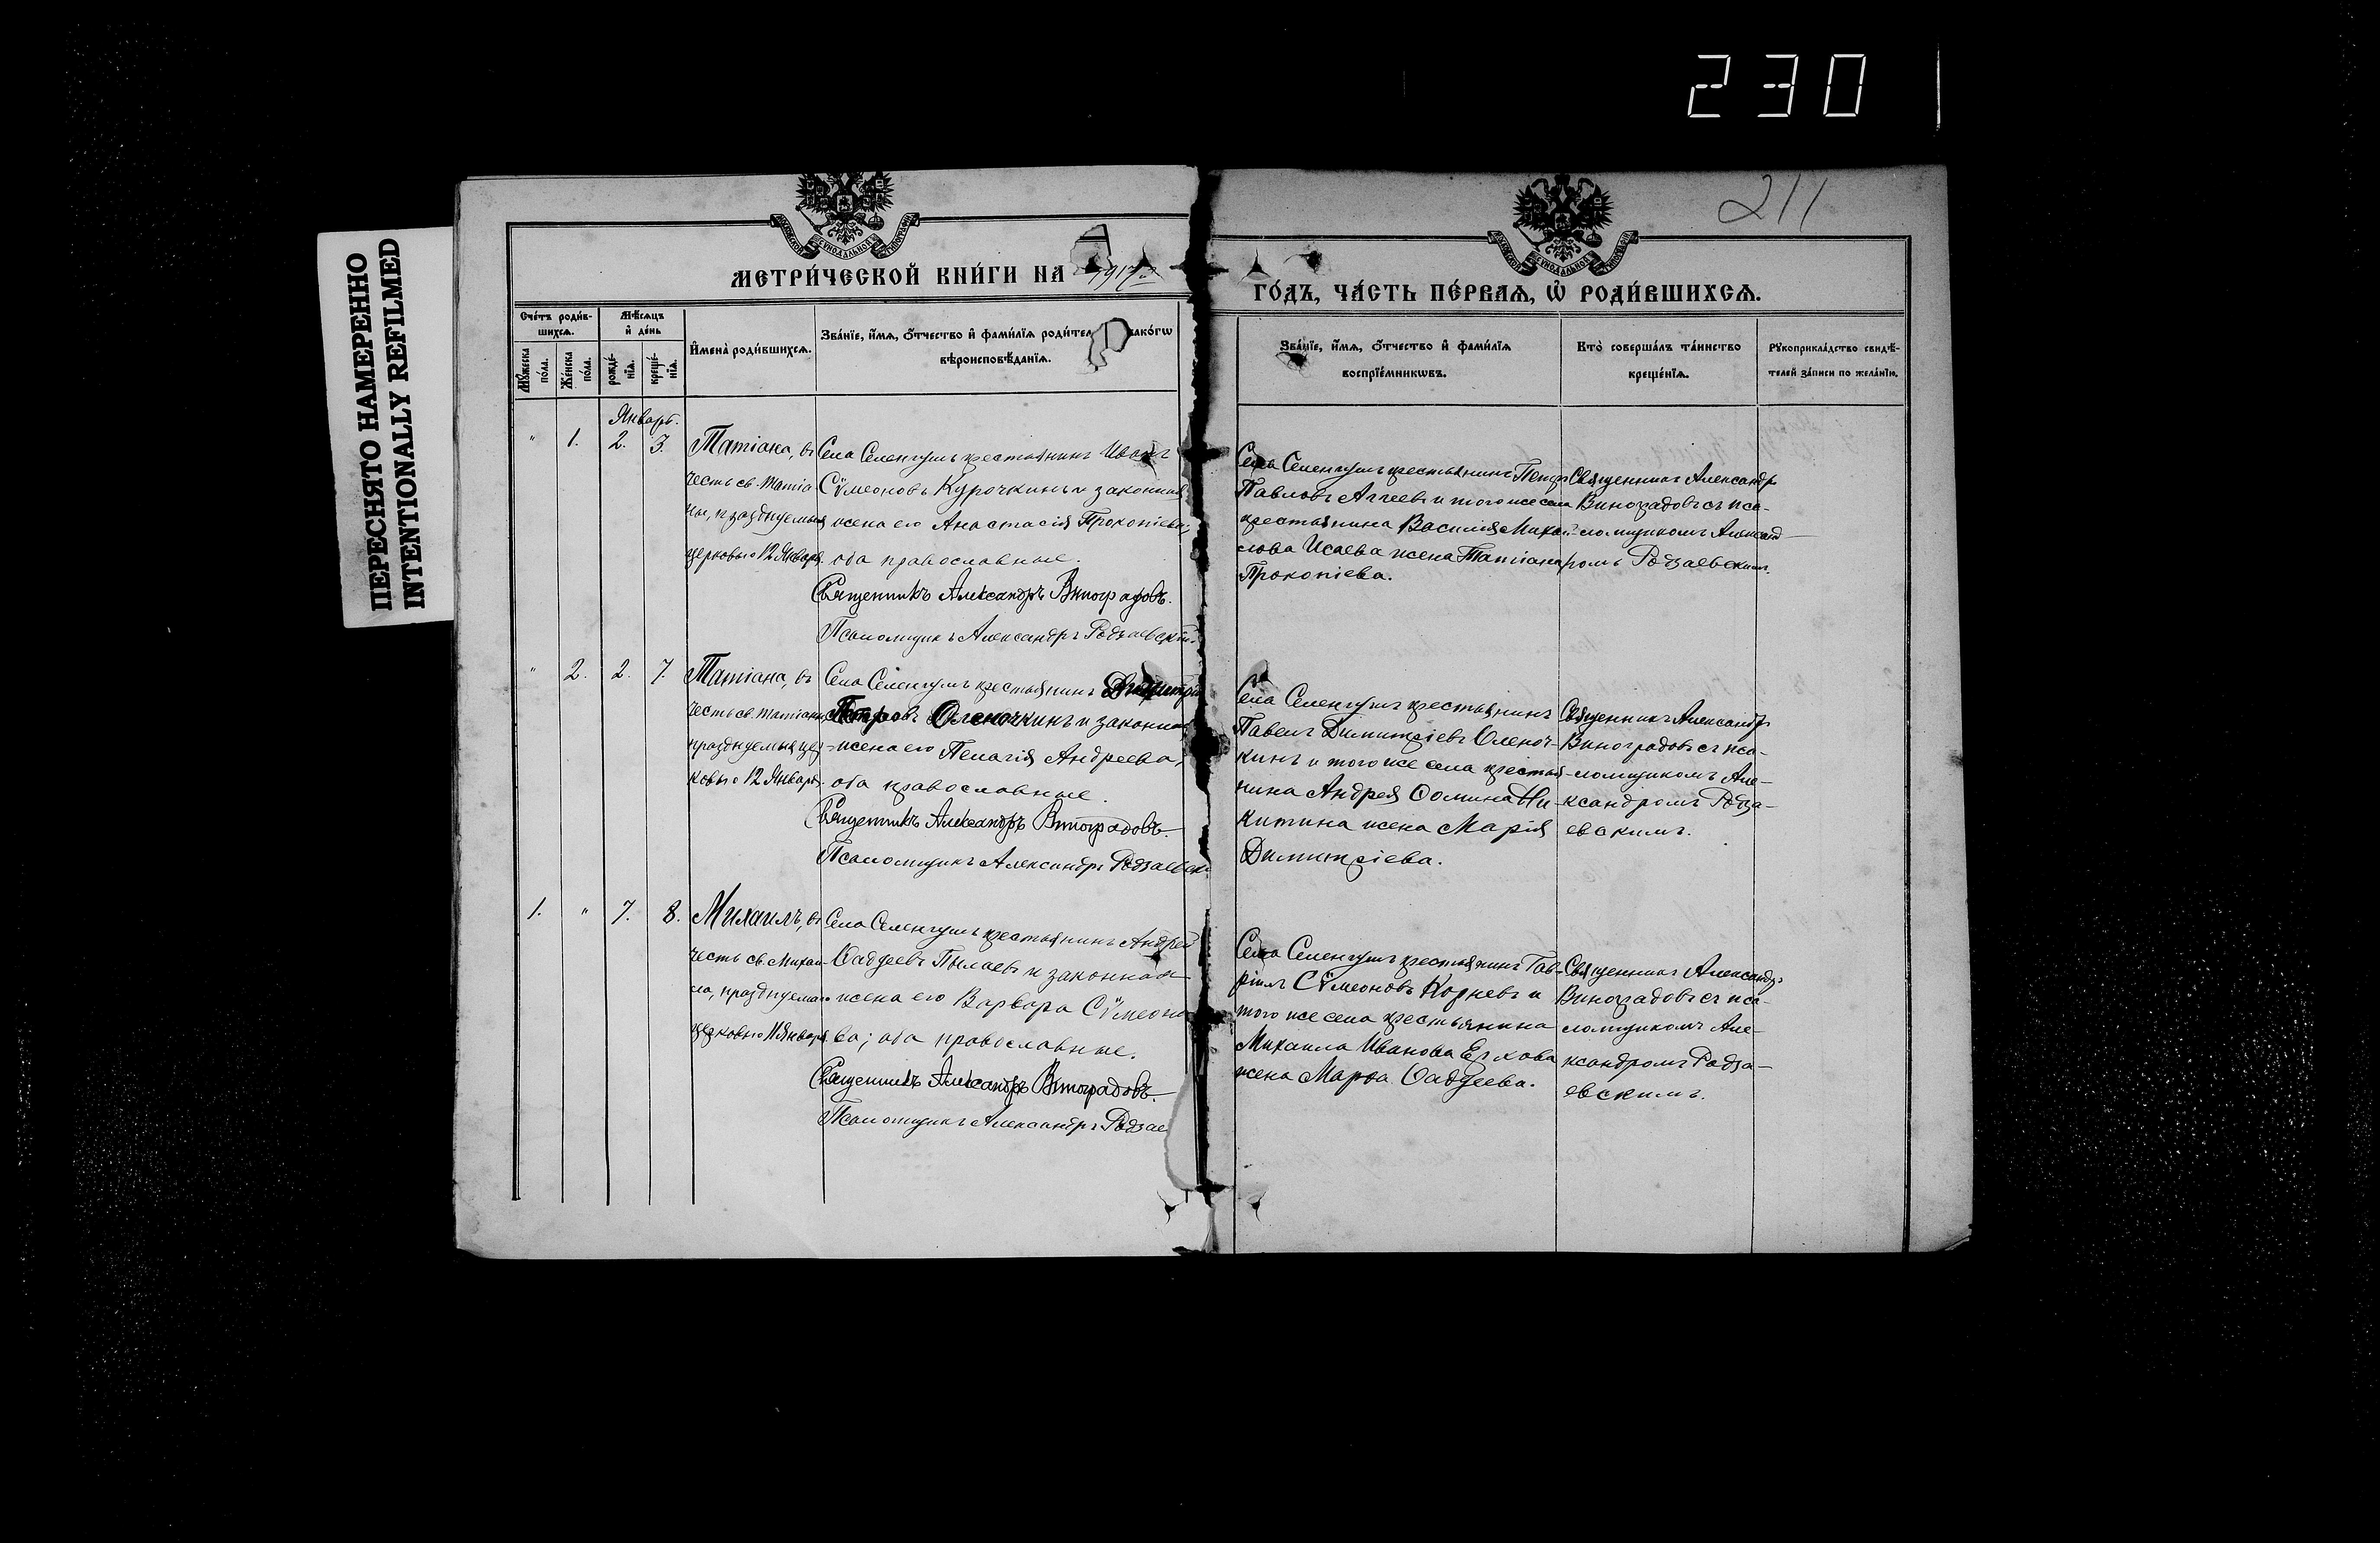 230
ПЕРЕСНЯТО НАМЕРЕННО
INTENTIONALLY REFILMED
211
МЕТРИ́ЧЕСКОЙ КНИ́ГИ НА 1917
ГО́ДЪ, ЧА́СТЬ ПЕ́РВАЯ, Ѡ РОДИ́ВШИХСЯ.
Сче́тъ роди́в-
шихся.
Мѣ́сяцъ
и де́нь
Му́жеска
по́ла.
Же́нска
по́ла.
рожде́-
нїя.
креще́-
нїя.
Имена̀ роди́вшихся.
Зва́нїе, и́мя, о́тчество и фами́лїя роди́тел како́гѡ
вѣроисповѣ́данїя.
Зва́нїе, и́мя, о́тчество и фами́лїя
воспрїе́мникѡвъ.
Кто̀ соверша́лъ та́инство
креще́нїя.
Рукоприкла́дство свидѣ́-
телей за́писи по жела́нїю.
Январь.
" 1. 2. 3.
Татіана, въ
честь св. Татіа-
ны, празднуемыя
церковью 12 Января.
Села Селенгушъ крестьянинъ Иванъ
Сѵмеоновъ Курочкинъ и законная
жена его Анастасія Прокопіева;
оба православные.
Священникъ Александръ Виноградовъ.
Псаломщикъ Александръ Родзаевскій.
Села Селенгушъ крестьянинъ Петръ
Павловъ Аггеевъ и того же села
крестьянина Василія Михай-
лова Исаева жена Татіана
Прокопіева.
Священникъ Александръ
Виноградовъ съ пса-
ломщикомъ Александ-
ромъ Родзаевскимъ.
" 2. 2. 7.
Татіана, въ
честь св. Татіаны,
празднуемыя цер-
ковью 12 Января.
Села Селенгушъ крестьянинъ Димитрій
Петровъ Оленочкинъ и законная
жена его Пелагія Андреева,
оба православные.
Священникъ Александръ Виноградовъ.
Псаломщикъ Александръ Родзаевск
Села Селенгушъ крестьянинъ
Павелъ Димитріевъ Оленоч-
кинъ и того же села крестья-
нина Андрея Ѳомина Ни-
китина жена Марія
Димитріева.
Священникъ Александръ
Виноградовъ съ пса-
ломщикомъ Але-
ксандромъ Родза-
евскимъ.
1. " 7. 8.
Михаилъ, въ
честь св. Михаи-
ла, празднуемаго
церковью 11 Января.
Села Селенгушъ крестьянинъ Андрей
Ѳаддеевъ Пылаевъ и законная
жена его Варвара Сѵмеоно
ва; оба православные.
Священникъ Александръ Виноградовъ.
Псаломщикъ Александръ Родзае
Села Селенгушъ крестьянинъ Гав-
ріилъ Сѵмеоновъ Корневъ и
того же села крестьянина
Михаила Иванова Ерхова
жена Марѳа Ѳаддеева.
Священникъ Александръ
Виноградовъ съ пса-
ломщикомъ Але-
ксандромъ Родза-
евскимъ.